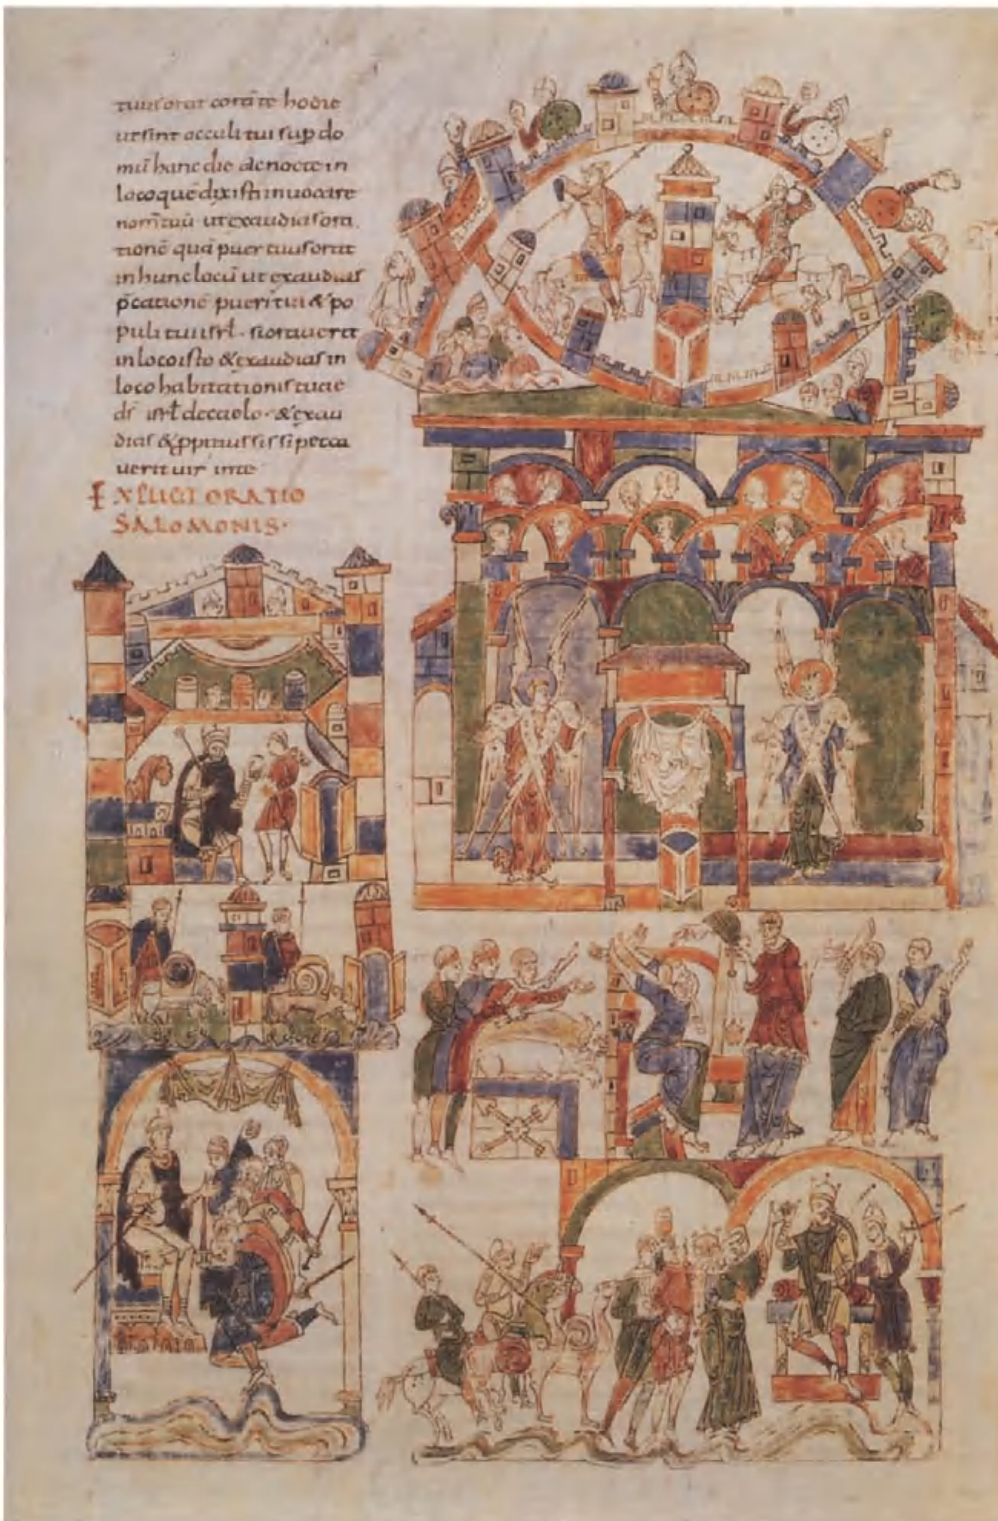 tuus orat corā te hodie
ut sint occuli tui sup do
mū hanc die ac nocte in
loco quē dixisti inuocare
nom̄ tuū ut exaudias ora
tionē quā puer tuus orat
in hunc locū ut exaudias
p̄cationē pueri tui & po
puli tui isrł · si orauerit
in loco isto & exaudias in
loco habitationis tuae
ds̄ isrł de caelo · & exau
dias & ppitius sis si pecca
uerit uir in te
EXPLICIT ORATIO
SALOMONIS·